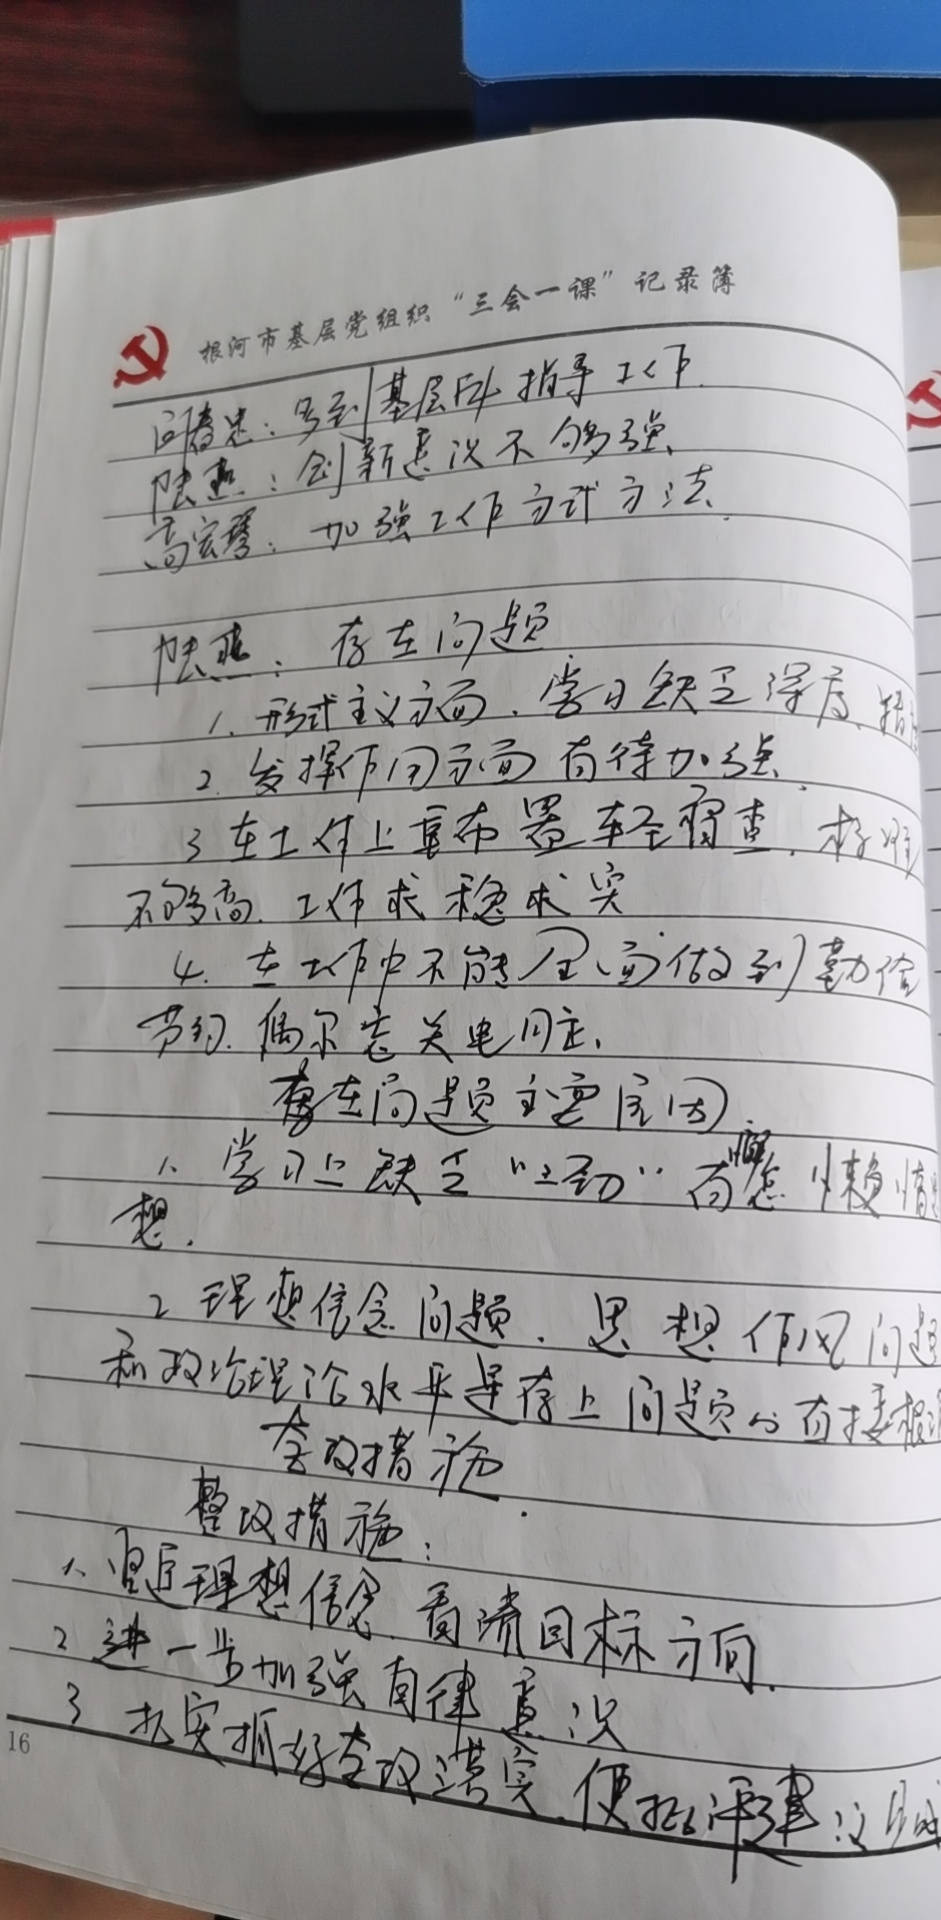 根河市基层党组织“三会一课”记录簿
闫春忠：多到基层队指导工作.
陆燕：创新意识不够强.
高宏琴：加强工作方式方法.
陆燕：存在问题
1. 形式主义方面、学习缺乏深度、
2. 发挥作用方面有待加强.
3 在工作上重布置轻督查.标准
不够高.工作求稳求实
4. 在工作中不能全面做到勤俭
节约.偶尔忘关电闸.
存在问题主要原因.
1. 学习上缺乏“主动”有懒
想.
2 理想信念问题.思想作风问题
和政治理论水平是存上问题的有接根
查改措施
整改措施：
1. 坚定理想信念.看清目标方向.
2 进一步加强自律意识
3 扎实抓好查改落实.使批评建议
16